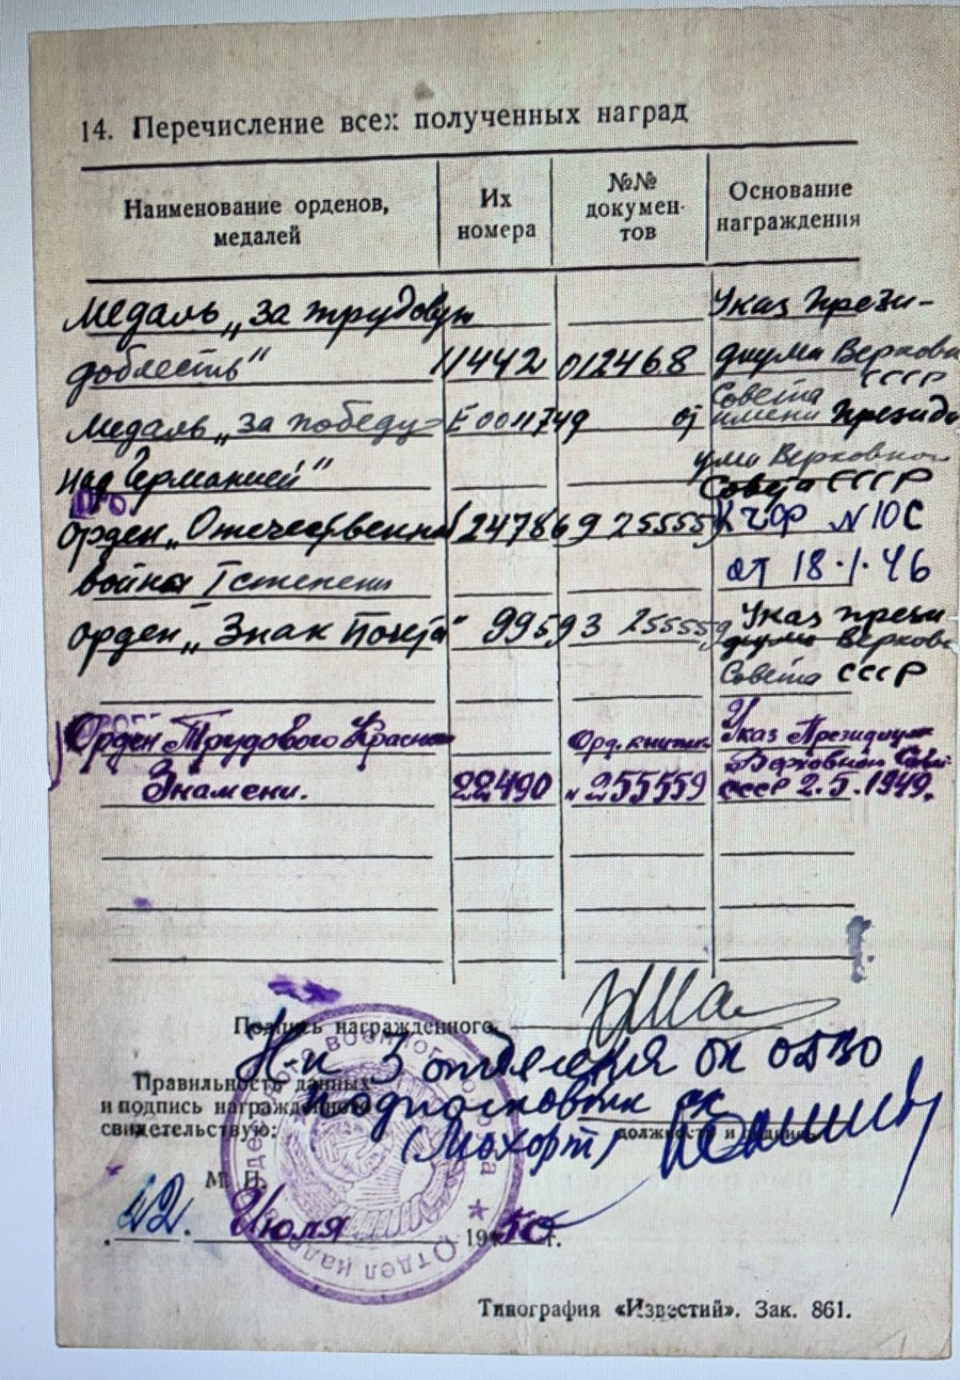 14. Перечисление всех полученных наград
Наименование орденов, медалей
Их номера
№№ документов
Основание награждения
Медаль „за трудовую
Указ Прези-
доблесть"
11442
012468
диума Верховн
Совета СССР
Медаль „за победу
Е 0011749
от имени Президи
ума Верховного
над Германией"
Совета СССР
орден „Отечественной
247869
255559
КЧФ N 10С
война I степени
от 18.1.46
орден „Знак Почета"
99593
255559
Указ Прези-
диума Верховн
Совета СССР
Орден Трудового Красного
Орд. книжка
Указ Президиума
Верховного Сове
Знамени.
22490
N 255559
СССР 2.5.1949.
Подпись награжденного
Н-к 3 отделения ок ОдВО
Правильность данных
и подпись награжденного
свидетельствую:
подполковник
(Мохорт)
должность и подпись
М. П.
22. Июля 1950 г.
Отдел
Типография «Известий». Зак. 861.